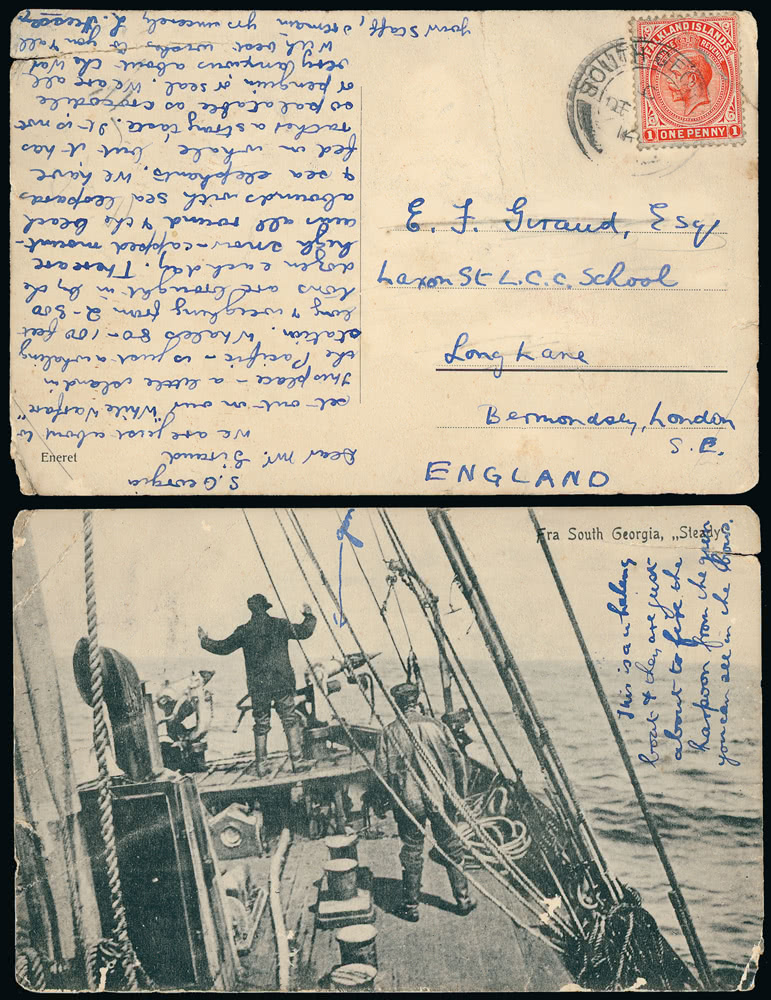 S. Georgia
Dear Mr. Giraud
We are just about to
set out on our "White Warfare"
This place - a little island in
the Pacific - is just a whaling
station. Whales 80-100 feet
long & weighing from 2-300
tons are brought in by the
dozen each day. There are
high snow-capped mount-
ains all round & the beach
abounds with sea leopards
& sea elephants. We have
fed on whale but it has
rather a strong taste. It is not
so palatable as crocodile
or penguin or seal. We are all
very anxious about the War
With best wishes to you & all
your Staff, I remain yrs sincerely
L. Hussey
Eneret
SOUTH
FALKLAND ISLANDS
REVENUE
1 ONE PENNY 1
E. F. Giraud, Esq
Laxon St L.C.C. School
Long Lane
Bermondsey, London
S.E.
ENGLAND
Fra South Georgia, „Steady“
gun
This is a whaling
boat & they are just
about to fire the
harpoon from the gun
you can see in the bows.